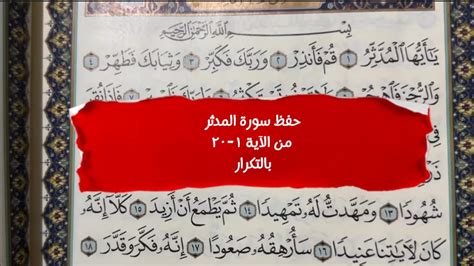 بِسْمِ اللَّهِ الرَّحْمَٰنِ الرَّحِيمِ
يَا أَيُّهَا الْمُدَّثِّرُ ١ قُمْ فَأَنذِرْ ٢ وَرَبَّكَ فَكَبِّرْ ٣ وَثِيَابَكَ فَطَهِّرْ ٤
وَالرُّجْزَ فَاهْجُرْ
حفظ سورة المدثر
من الآية ١-٢٠
بالتكرار
شُهُودًا ١٣ وَمَهَّدتُّ لَهُ تَمْهِيدًا ١٤ ثُمَّ يَطْمَعُ أَنْ أَزِيدَ ١٥ كَلَّا إِنَّهُ
كَانَ لِآيَاتِنَا عَنِيدًا ١٦ سَأُرْهِقُهُ صَعُودًا ١٧ إِنَّهُ فَكَّرَ وَقَدَّرَ ١٨